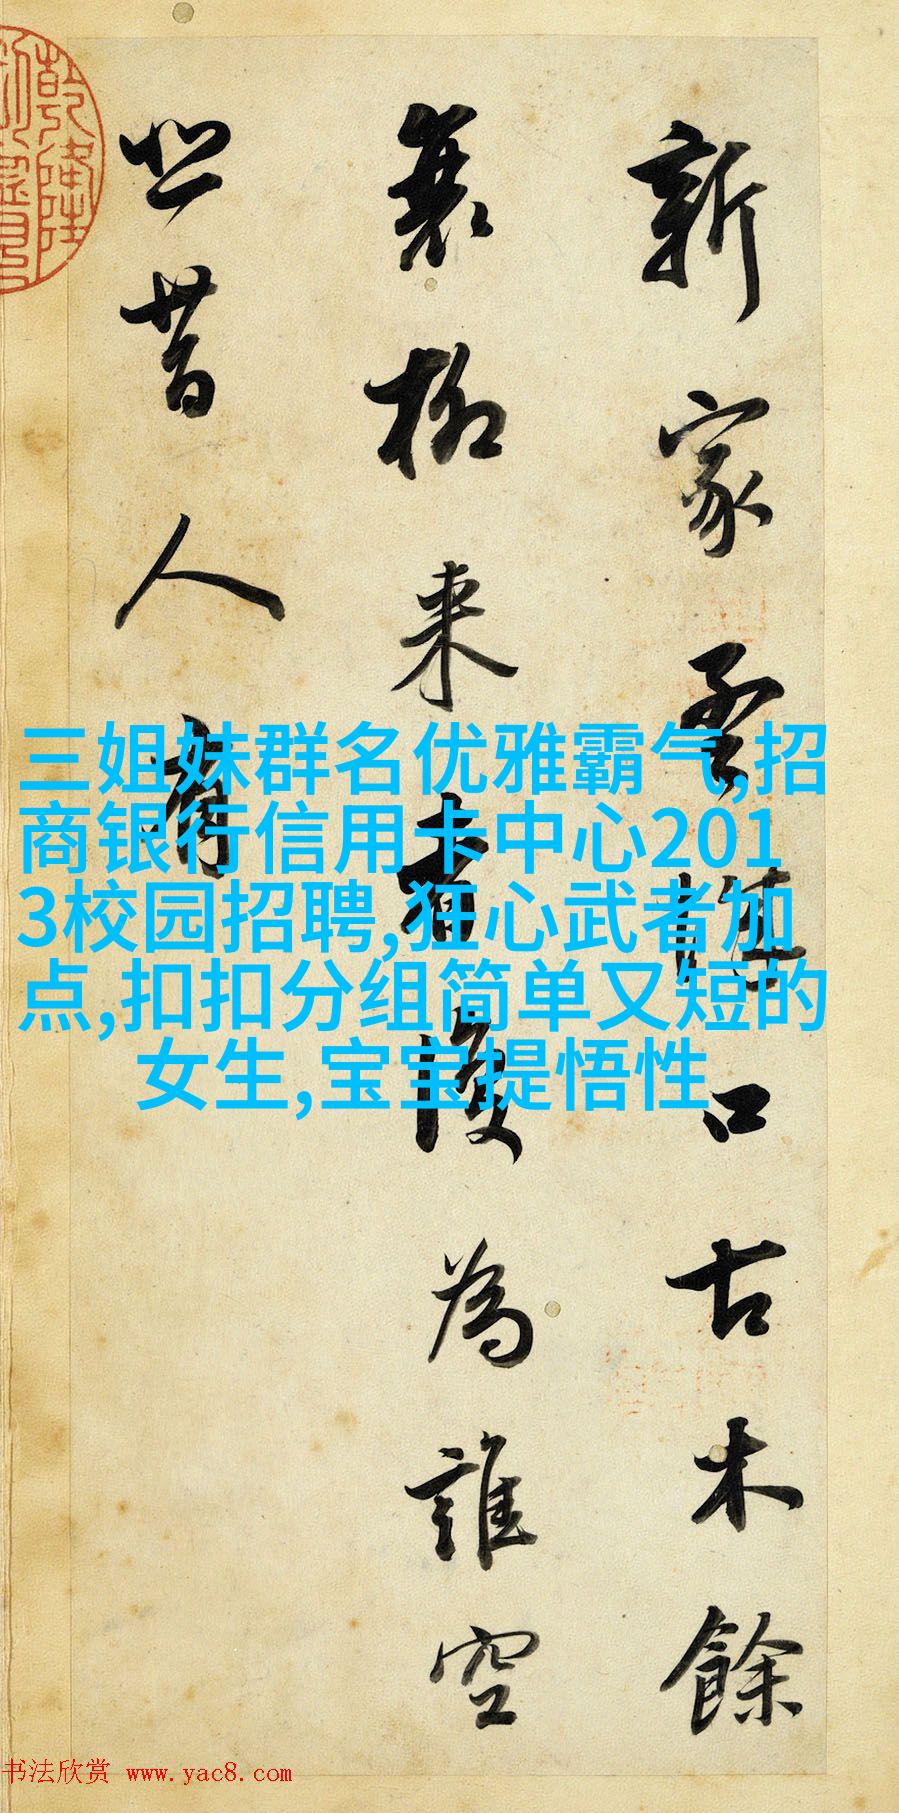 新家孟城口古木餘
衰柳來者復為誰空
悲昔人有
三姐妹群名优雅霸气,招
商银行信用卡中心201
3校园招聘,狂心武者加
点,扣扣分组简单又短的
女生,宝宝提悟性
书法欣赏 www.yac8.com